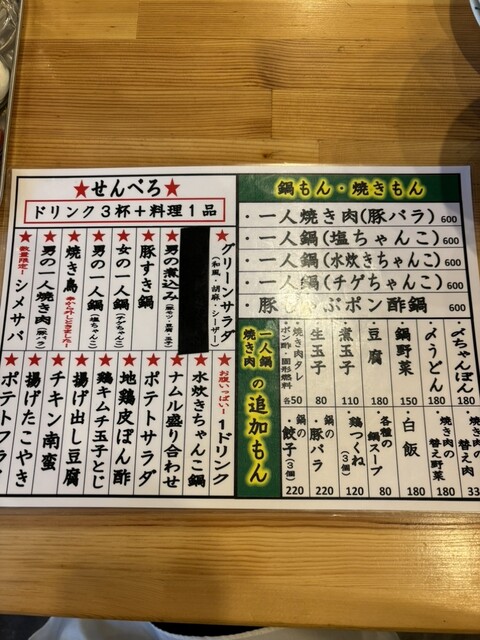 ★せんべろ★
ドリンク3杯+料理1品
★グリーンサラダ
(和風・胡麻・シーザー)
★男の煮込み
★豚すき鍋
★女の一人鍋
(チゲちゃんこ)
★男の一人鍋
(塩ちゃんこ)
★焼き鳥
★男の一人焼き肉
(豚バラ)
★数量限定!
シメサバ
★お腹いっぱい!
1ドリンク
★水炊きちゃんこ鍋
★ナムル盛り合わせ
★ポテトサラダ
★地鶏皮ぽん酢
★鶏キムチ玉子とじ
★揚げ出し豆腐
★チキン南蛮
★揚げたこやき
★ポテトフライ
鍋もん・焼きもん
・一人焼き肉(豚バラ) 600
・一人鍋(塩ちゃんこ) 600
・一人鍋(水炊きちゃんこ) 600
・一人鍋(チゲちゃんこ) 600
・豚しゃぶポン酢鍋 600
一人鍋
焼き肉
の追加もん
・〆ちゃんぽん 180
・〆うどん 180
・鍋野菜 150
・豆腐 80
・煮玉子 110
・生玉子 80
・焼き肉タレ
・ポン酢・固形燃料
各50
・焼き肉の
替え肉
33
・焼き肉の
替え野菜
180
・白飯 180
・各種の
鍋スープ
80
・鶏つくね(3個) 120
・鍋の
豚バラ
220
・鍋の
餃子(3個)
220